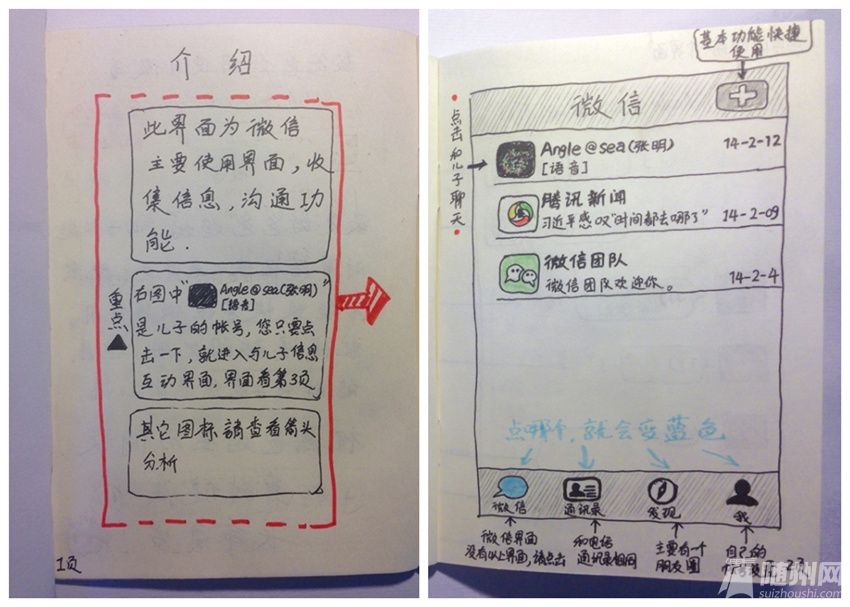 介绍
此界面为微信
主要使用界面,收
集信息,沟通功
能.
重点
右图中"Angle@sea(张明)"
[语音]
是儿子的帐号,您只要点
击一下,就进入与儿子信息
互动界面.界面看第3页
其它图标請查看箭头
分析
1页
基本功能快捷
使用
微信
点击和儿子聊天
Angle@sea(张明)
14-2-12
[语音]
腾讯新闻
习近平感叹"时间都去哪了"
14-2-09
微信团队
微信团队欢迎你。
14-2-4
点哪个,就会变蓝色
微信
通讯录
发现
我
微信界面
没有以上界面,请点击
和电信
通讯录相同
主要有一个
朋友圈
自己的
随州网
suizhoushi.com